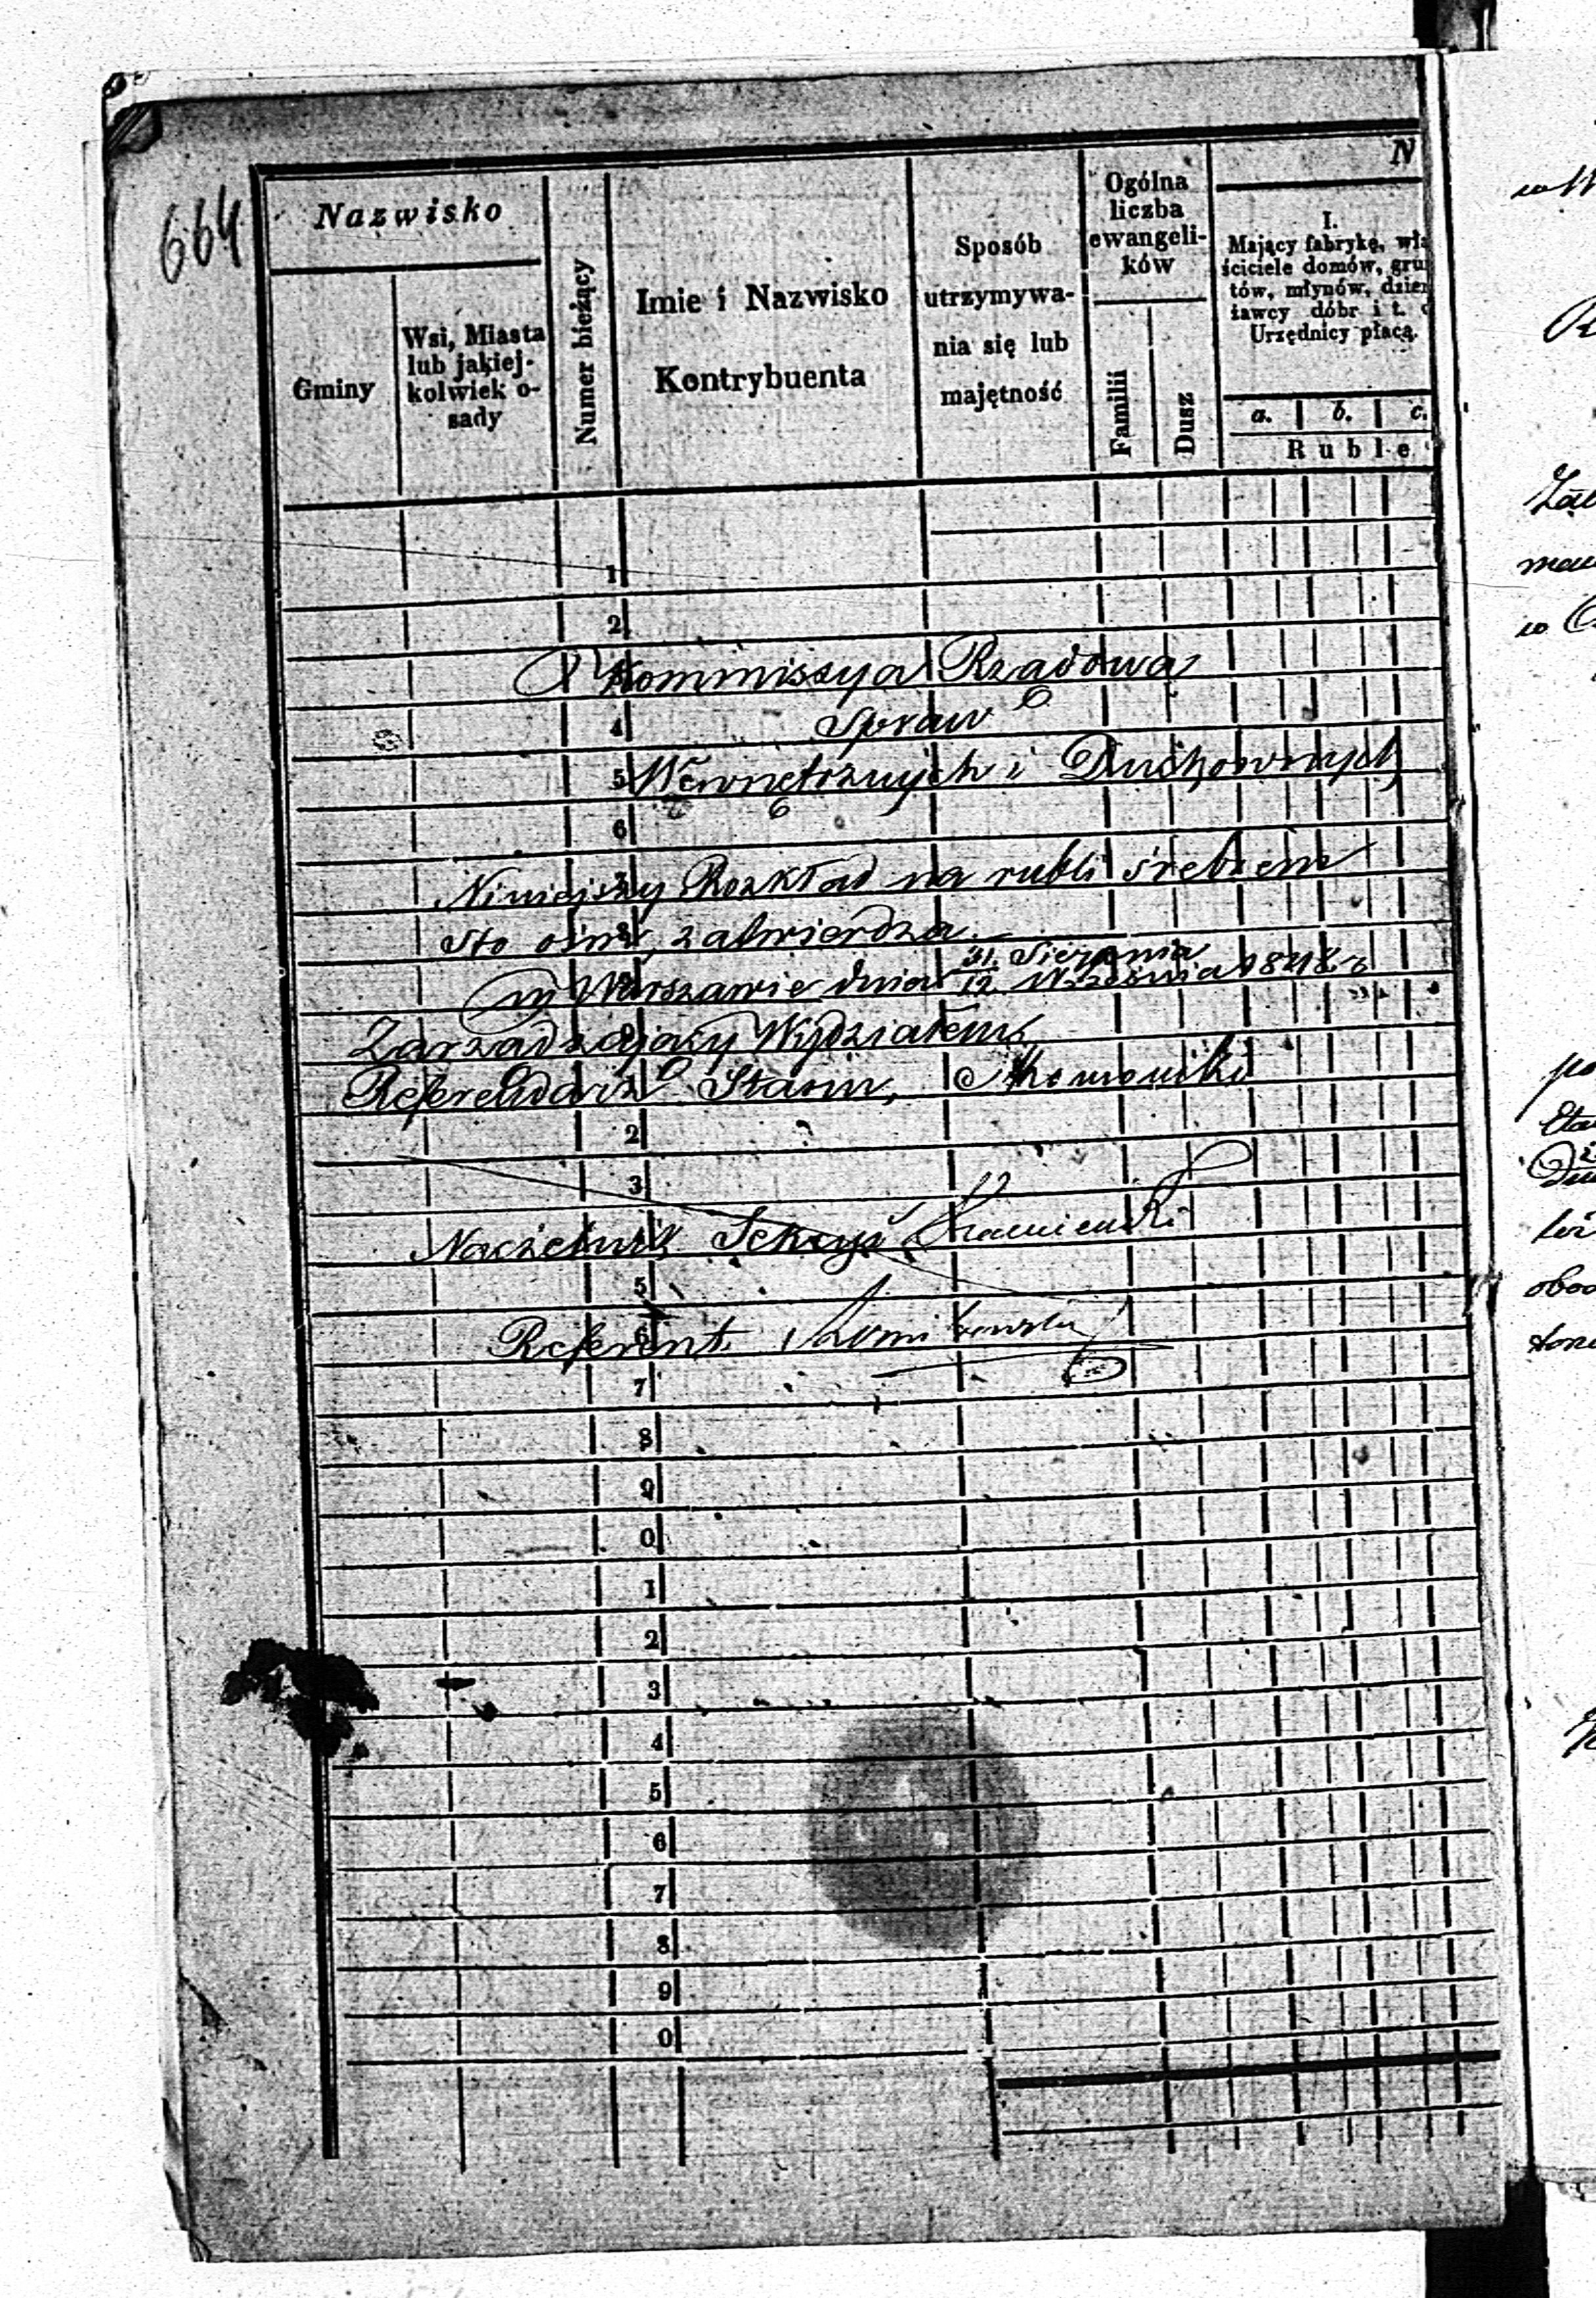 664
Nazwisko
Gminy
Wsi, Miasta
lub jakiej-
kolwiek o-
sady
Numer bieżący
Imie i Nazwisko
Kontrybuenta
Sposób
utrzymywa-
nia się lub
majętność
Ogólna
liczba
ewangeli-
ków
Familii
Dusz
N
I.
Mający fabrykę, wła
ściciele domów, grun
tów, młynów, dzier
żawcy dóbr i t.
Urzędnicy płacą.
a. b. c.
Ruble
1
2
Kommissya Rządowa
4
Spraw
5
Wewnętrznych i Duchownych
6
Niniejszy Rozkład na rubli śrebrem
sto ośm, zatwierdza.
w Warszawie dnia 31. Sierpnia
12 Września 1848 r
Zarządzający Wydziałem,
Referendarz Stanu,
2
3
Naczelnik Sekcyi
5
Referent
6
7
8
9
0
1
2
3
4
5
6
7
8
9
0